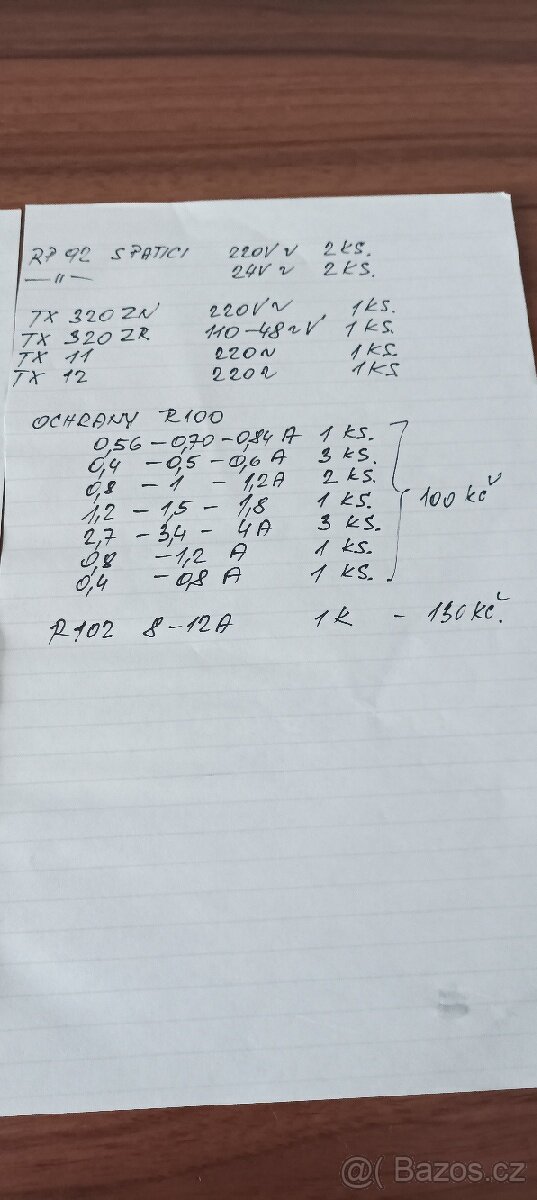 RP 92 SPATICI 220V ~ 2 KS.
—〃— 24V ~ 2 KS.
TX 320 ZN 220V ~ 1 KS.
TX 320 ZR 110-48 ~ V 1 KS.
TX 11 220 ~ 1 KS.
TX 12 220 ~ 1 KS
OCHRANY R100
0,56 - 0,70 - 0,84 A 1 KS.
0,4 - 0,5 - 0,6 A 3 KS.
0,8 - 1 - 1,2 A 2 KS.
1,2 - 1,5 - 1,8 1 KS.
100 Kč
2,7 - 3,4 - 4 A 3 KS.
0,8 - 1,2 A 1 KS.
0,4 - 0,8 A 1 KS.
R102 8 - 12 A 1 K - 130 Kč.
@( Bazos.cz